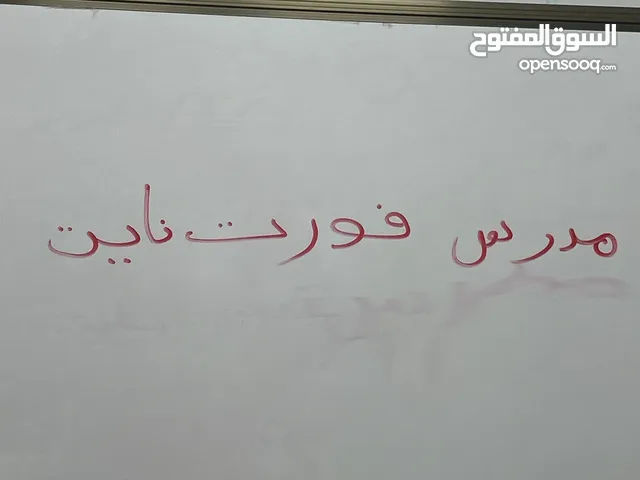 السوق المفتوح
opensooq.com
مدرس فورت نايت